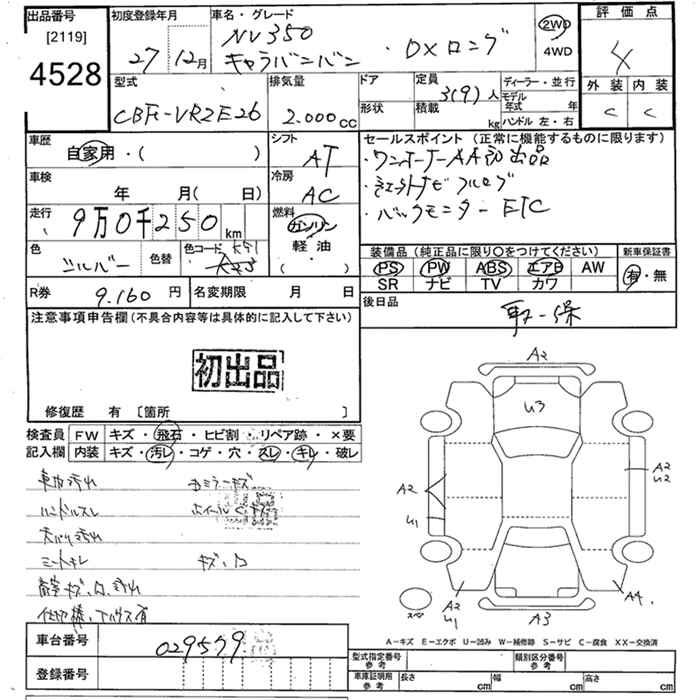 出品番号
[2119]
4528
初度登録年月
27年12月
車名・グレード
NV350
キャラバンバン DXロング
2WD
4WD
評価点
4
外装 内装
C C
型式
CBF-VR2E26
排気量
2.000cc
ドア
形状
定員
3(9)人
積載
kg
ディーラー・並行
モデル
年式 年
ハンドル 左・右
車歴
自家用・( )
シフト
AT
車検
年 月(日)
冷房
AC
走行
9万0千250km
燃料
ガソリン
軽油
( )
色
シルバー
色替
色コード
K51
K23
セールスポイント (正常に機能するものに限ります)
・ワンオーナーAA初出品
・社外ナビフルセグ
・バックモニター ETC
装備品 (純正品に限り○をつけてください)
新車保証書
PS PW ABS エアB AW
SR ナビ TV カワ
有・無
R券 9.160円
名変期限 月 日
後日品
取-保
注意事項申告欄 (不具合内容等は具体的に記入して下さい)
初出品
修復歴 有 [箇所 ]
検査員 FW キズ・飛石・ヒビ割・リペア跡・×要
記入欄 内装 キズ・汚レ・コゲ・穴・スレ・キレ・破レ
車内汚れ
ハンドルスレ
天バリ汚れ
シートキレ
荷室キズ、凹、汚れ
仕切様、アハウス有
カミラーキズ
ホイールキズ
キズ、凹
A2
U3
A2
U1
A2
U2
A2
U1
A4
A3
スペ
A-キズ E-エクボ U-凹み W-補修跡 S-サビ C-腐食 XX-交換済
車台番号 029579
登録番号
型式指定番号
参考
類別区分番号
参考
車庫証明用
参考
長さ cm
幅 cm
高さ cm